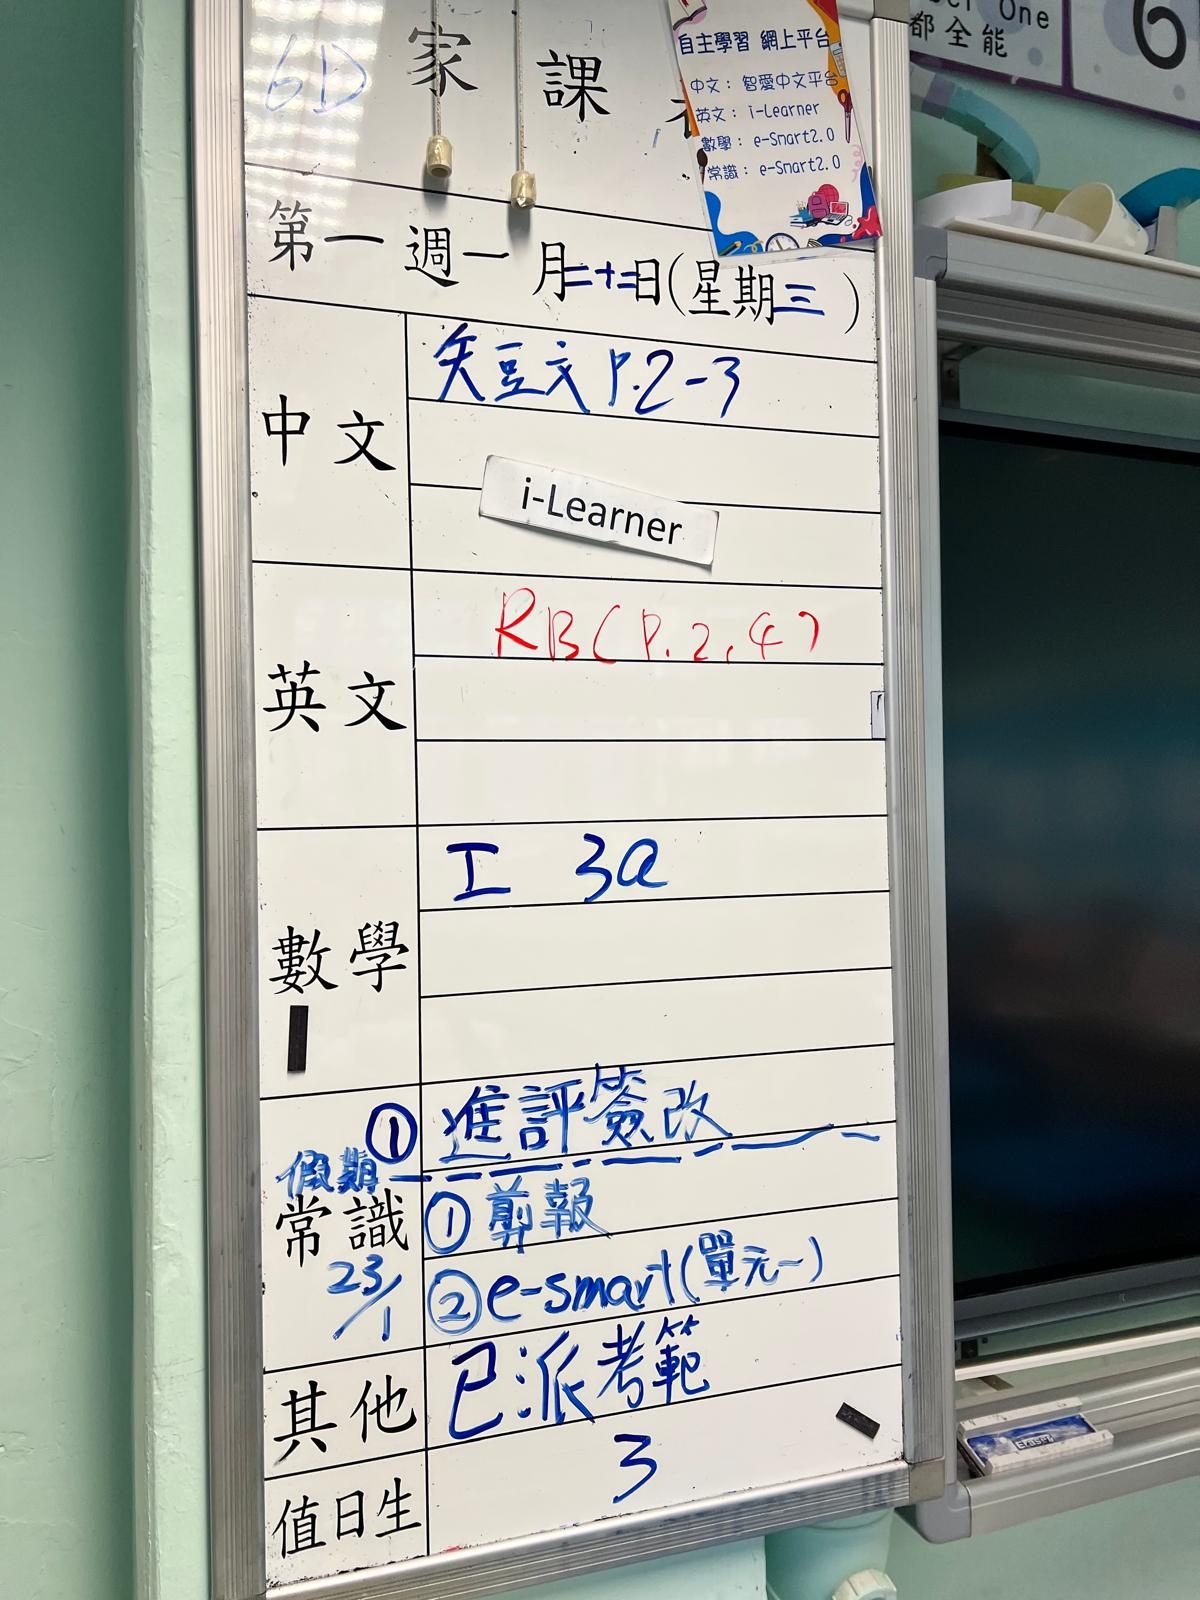 6D
家課
自主學習 網上平台
中文： 智愛中文平台
英文： i-Learner
數學： e-Smart2.0
常識： e-Smart2.0
One
都全能
6
第一週一月二十二日(星期三)
中文
矢豆文 P.2-3
i-Learner
英文
RB(P.2,4)
數學
工 3a
常識
① 進評簽改
假期
① 剪報
23/1
② e-smart(單元一)
其他
已派考範
值日生
3
Eraser